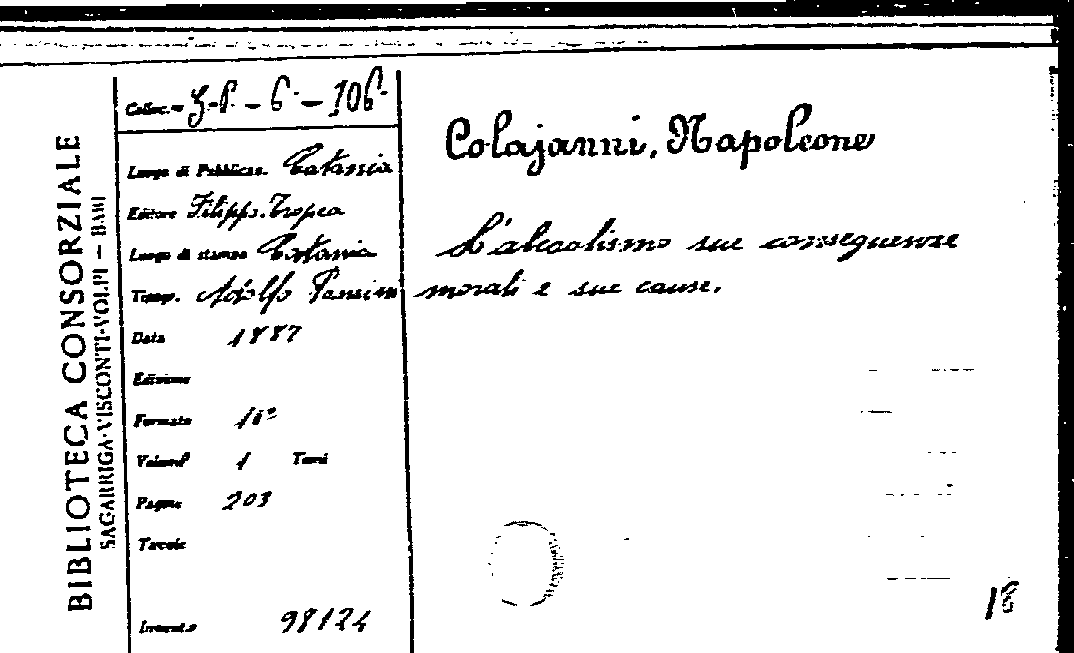 BIBLIOTECA CONSORZIALE
SAGARRIGA-VISCONTI-VOLPI — BARI
Colloc.
Luogo di Pubblicaz. Catania
Editore Filippo Tropea
Luogo di stampa Catania
Tipogr. Adolfo
Data 1887
Edizione
Formato 16º
Volumi 1 Tomi
Pagine 203
Tavole
Invent. 98124
Colajanni, Napoleone
L'alcoolismo sue conseguenze
morali e sue cause.
18